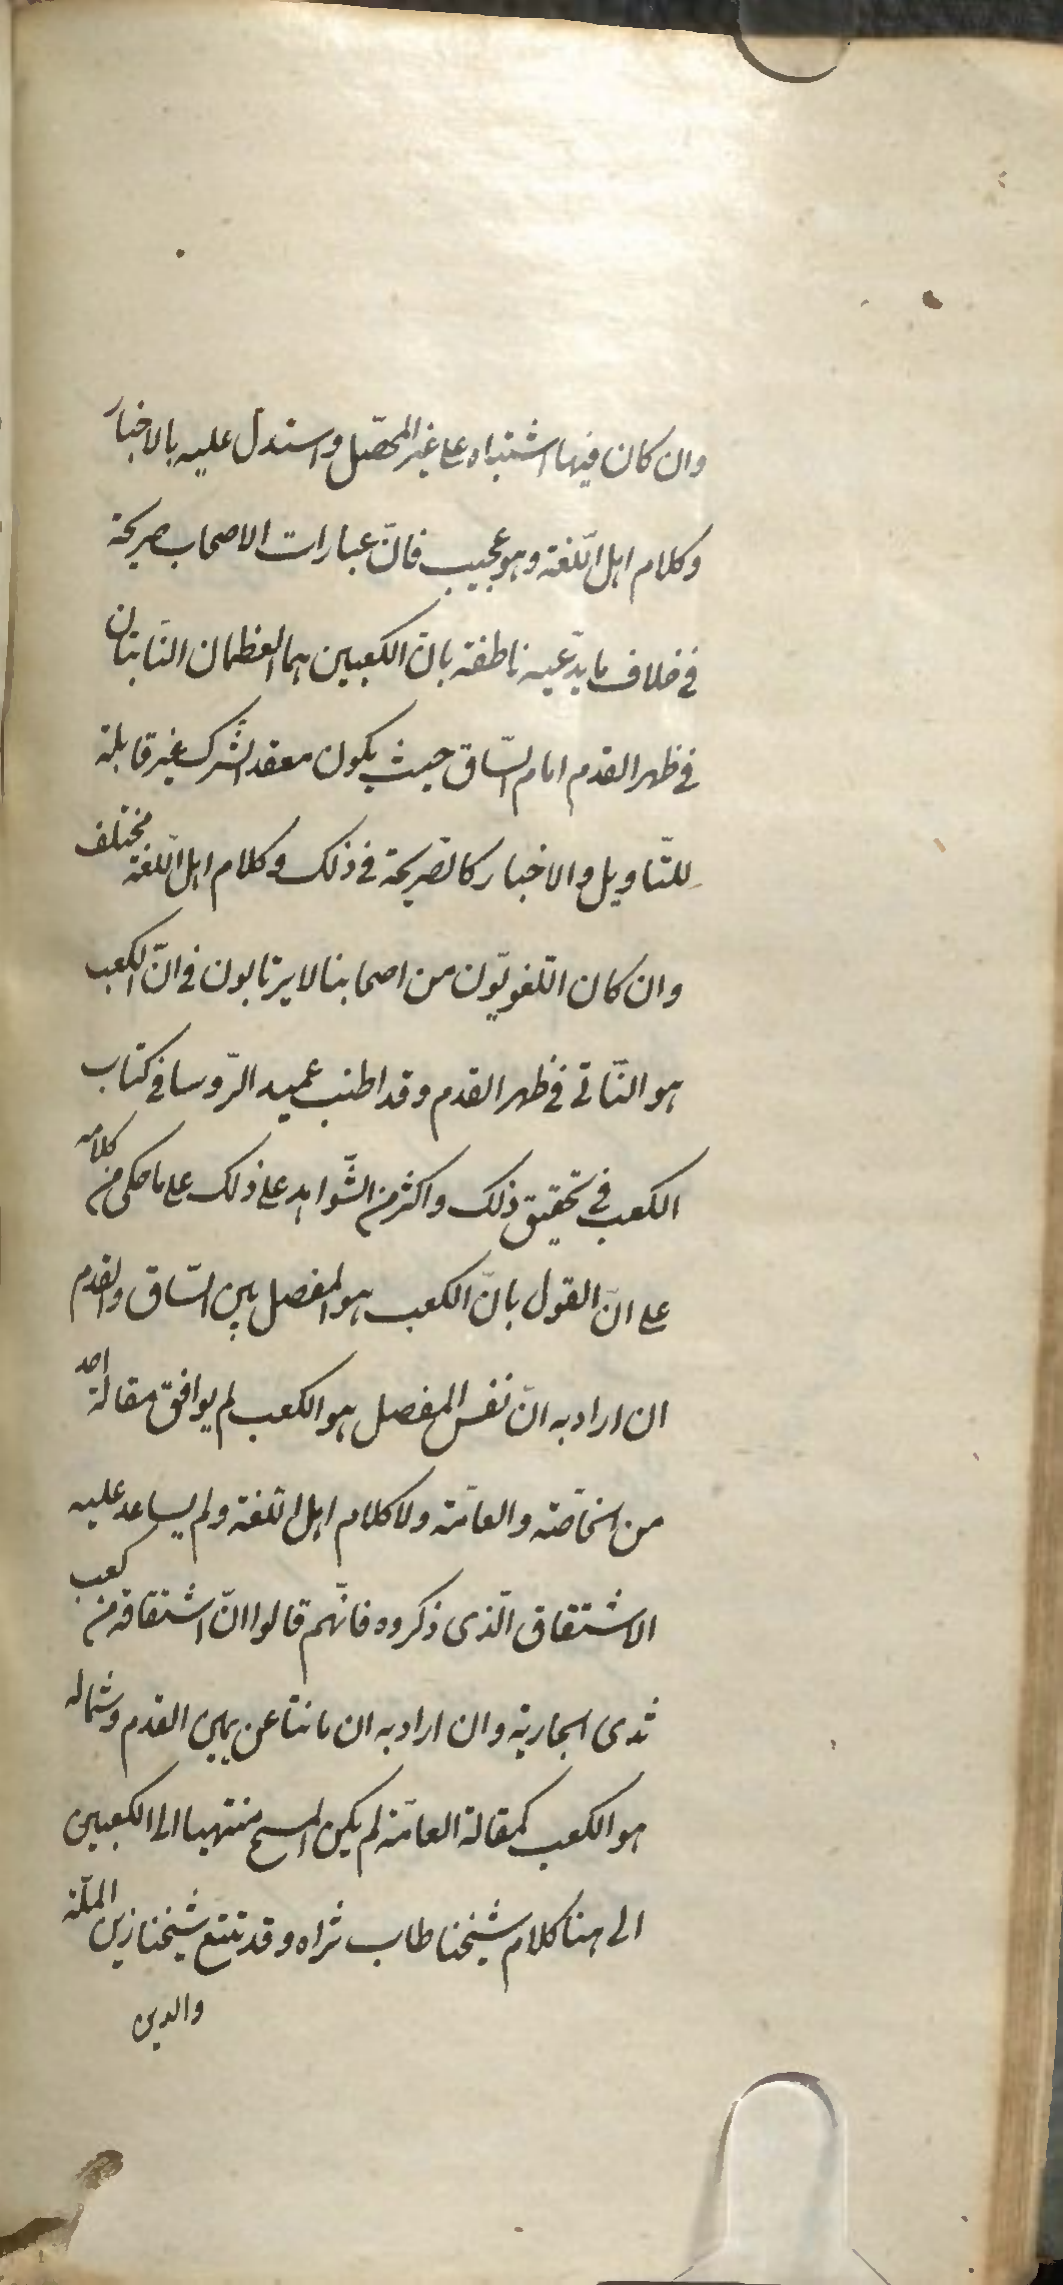 وان كان فيها اشتباه على غير المحصّل واستدل عليه بالاخبار
وكلام اهل اللّغة وهو عجيب فانّ عبارات الاصحاب صريحة
في خلاف ما يدّعيه ناطقة بانّ الكعبين هما العظمان النّابتان
في ظهر القدم امام السّاق حيث يكون معقد الشّرك غير قابلة
للتّاويل والاخبار كالصّريحة في ذلك وكلام اهل اللّغة مختلف
وان كان اللّغويّون من اصحابنا لا يرتابون في انّ الكعب
هو النّاتي في ظهر القدم وقد اطنب عميد الرّوسا في كتاب
الكعب في تحقيق ذلك واكثر من الشّواهد على ذلك على ما حكى من كلامه
على انّ القول بانّ الكعب هو المفصل بين السّاق والقدم
ان اراد به انّ نفس المفصل هو الكعب لم يوافق مقالة احد
من الخاصّة والعامّة ولا كلام اهل اللّغة ولم يساعد عليه
الاشتقاق الّذى ذكروه فانّهم قالوا انّ اشتقاقه من كعب
ثدى الجارية وان اراد به ان ما نتا عن يمين القدم وشماله
هو الكعب كمقالة العامّة لم يكن المسح منتهيا الى الكعبين
الى هنا كلام شيخنا طاب ثراه وقد تتبع شيخنا زين الملّة
والدين